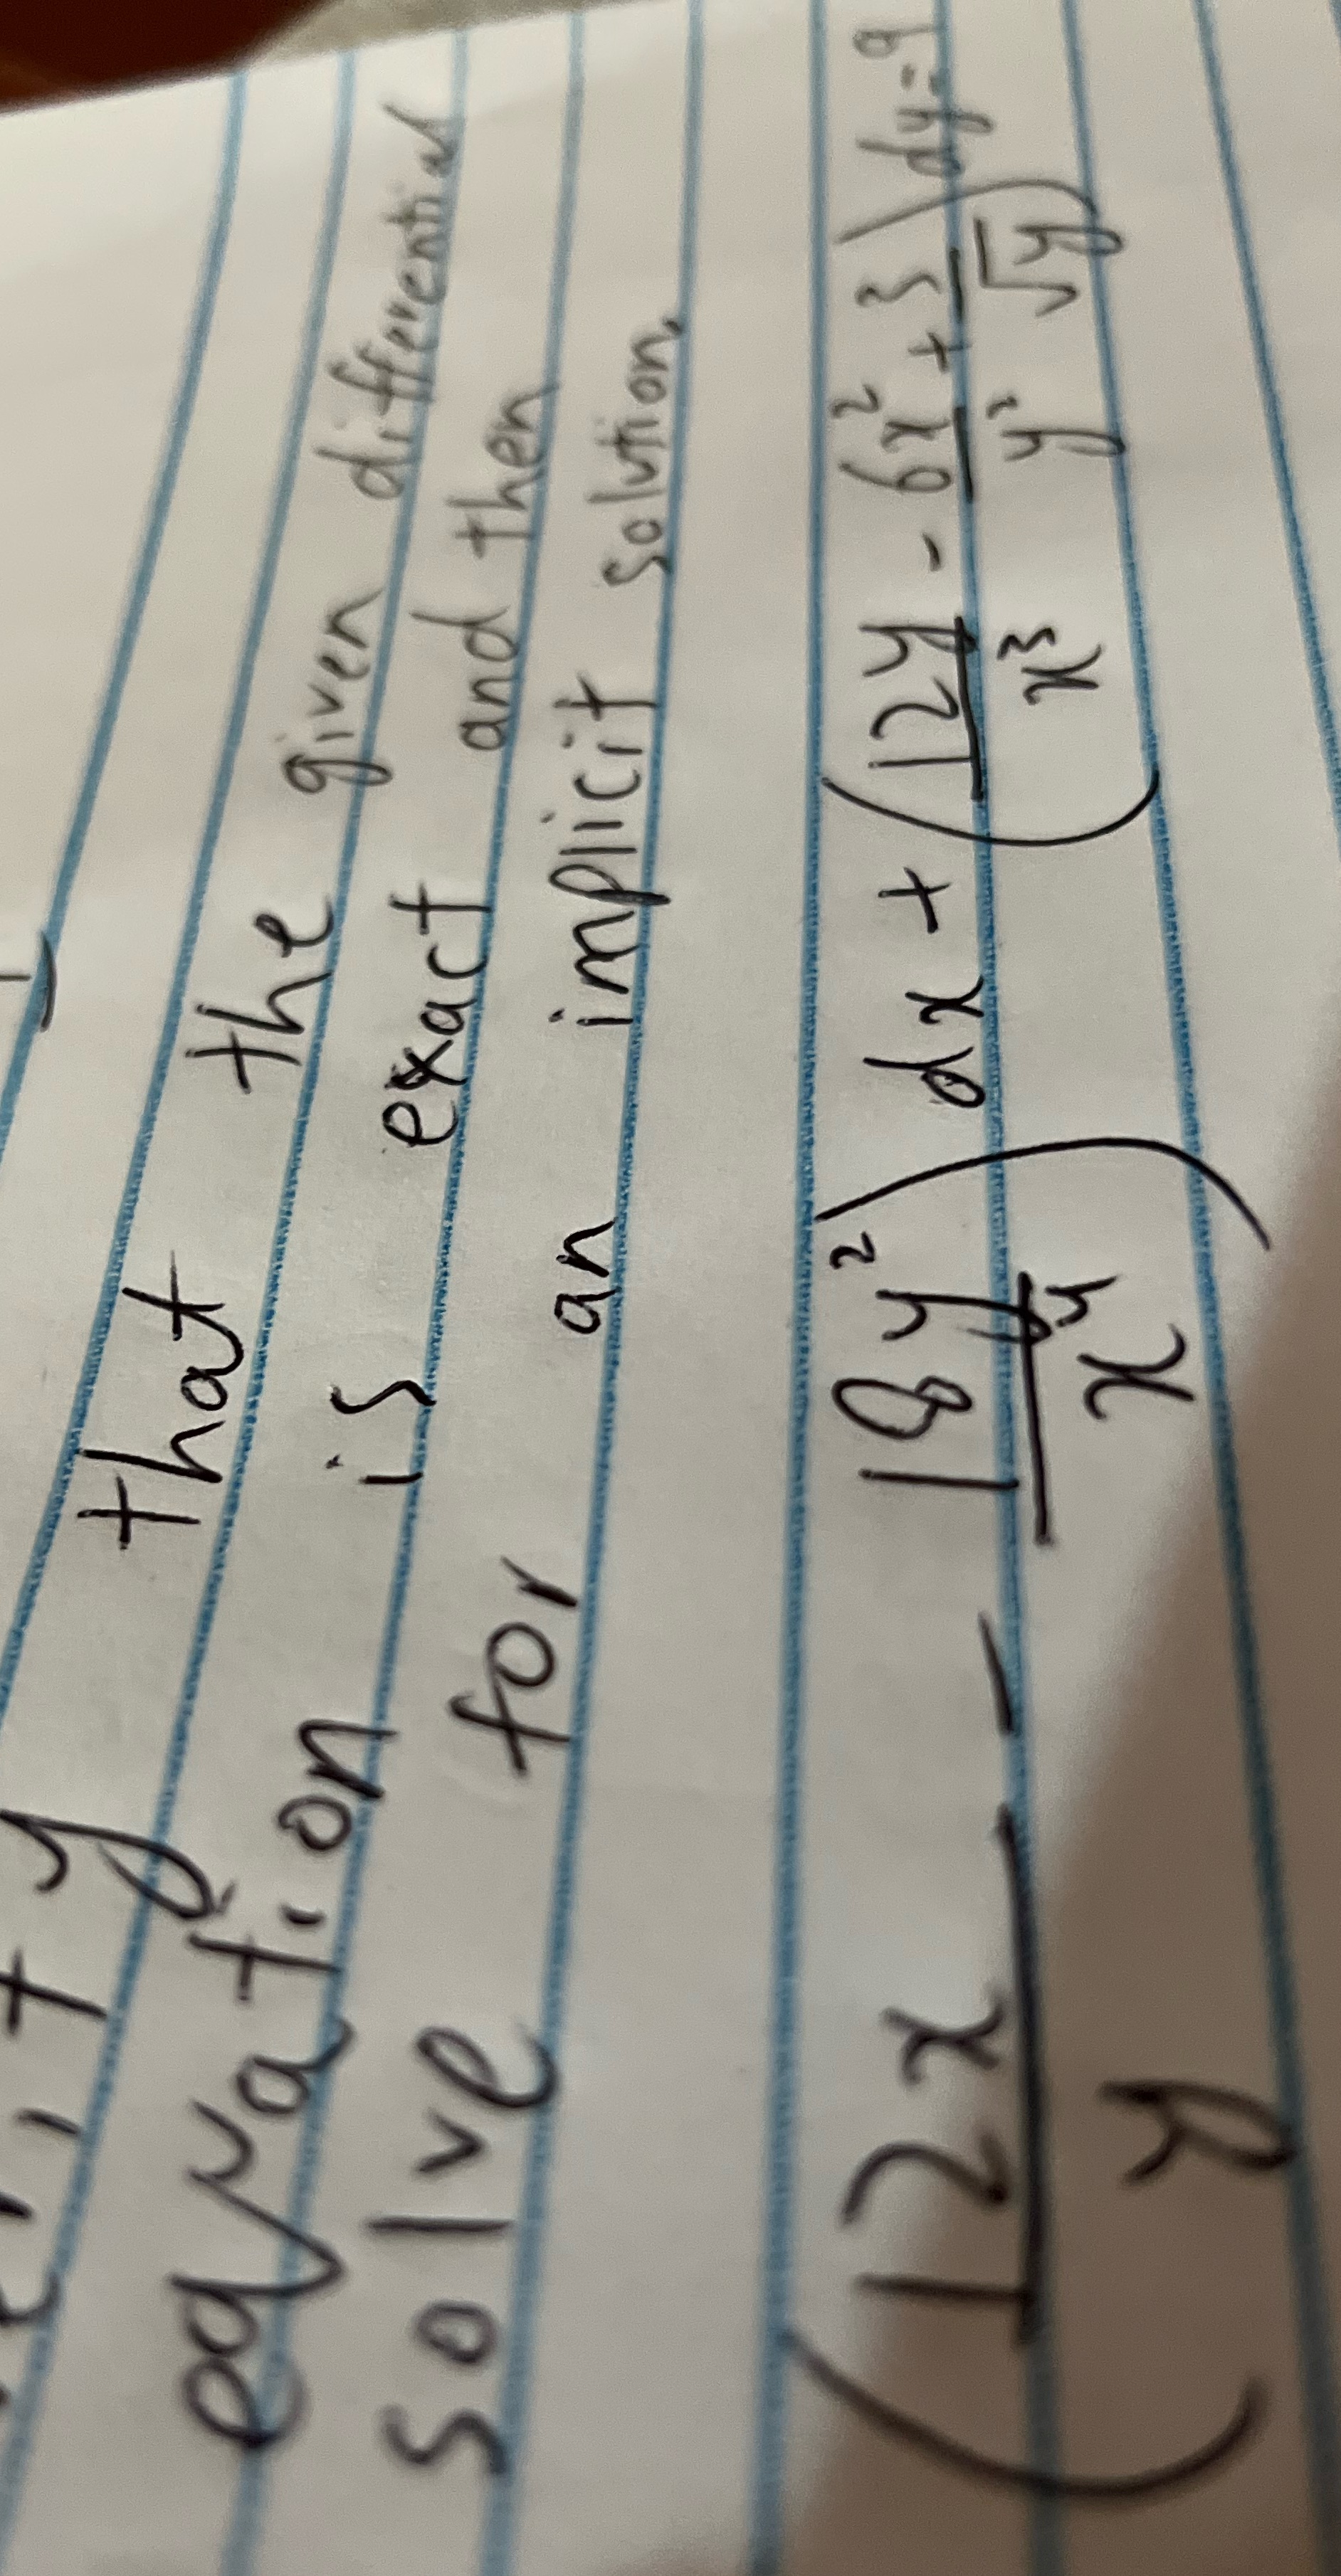 that the given differential
equation is exact and then
solve for an implicit solution.
(12x/y - 18y²/x⁴) dx + (12y/x³ - 6x²/y² + 3/√y) dy =